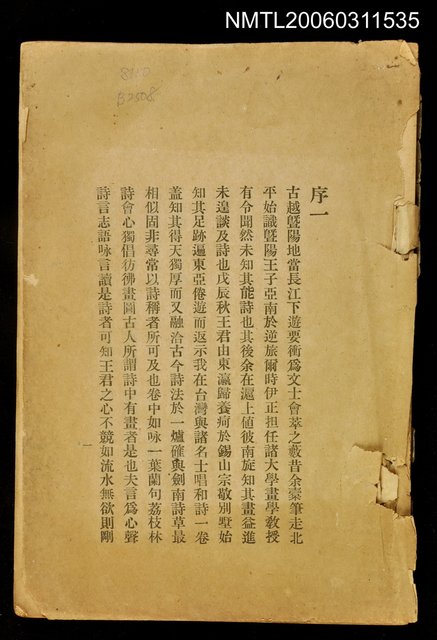 NMTL20060311535
序一
古越暨陽地當長江下遊要衝為文士會萃之藪昔余橐筆走北
平始識暨陽王子亞南於逆旅爾時伊正担任諸大學畫學教授
有令聞然未知其能詩也其後余在滬上値彼南旋知其畫益進
未遑談及詩也戊辰秋王君由東瀛歸養疴於錫山宗敬別墅始
知其足跡遍東亞倦遊而返示我在台灣與諸名士唱和詩一卷
盖知其得天獨厚而又融洽古今詩法於一爐確與劍南詩草最
相似固非尋常以詩稱者所可及也卷中如咏一葉蘭句荔枝林
詩會心獨倡彷彿畫圖古人所謂詩中有畫者是也夫言為心聲
詩言志語咏言讀是詩者可知王君之心不競如流水無欲則剛
一